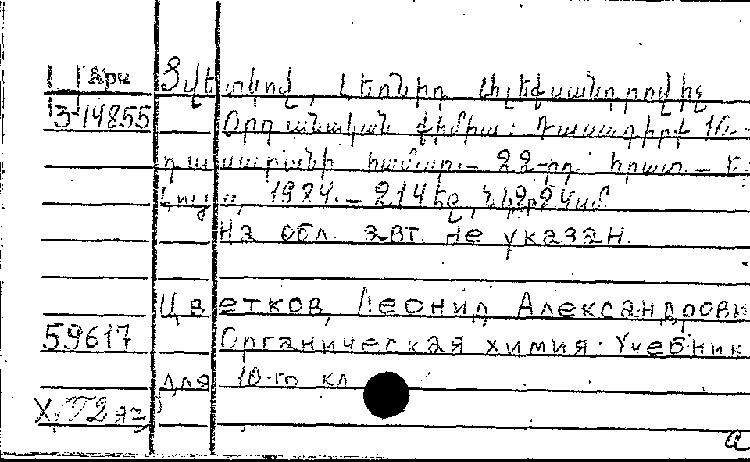 Արմ Ցվետկով, Լեոնիդ Ալեքսանդրովիչ
3-14855 Օրգանական քիմիա: Դասագիրք 10-
դասարանի համար.— 22-րդ հրատ.— Ե.:
Լույս, 1984.— 214 էջ,
На обл. авт. не указан.
Цветков, Леонид Александрови
59617 Органическая химия. Учебник
для 10-го кл
а